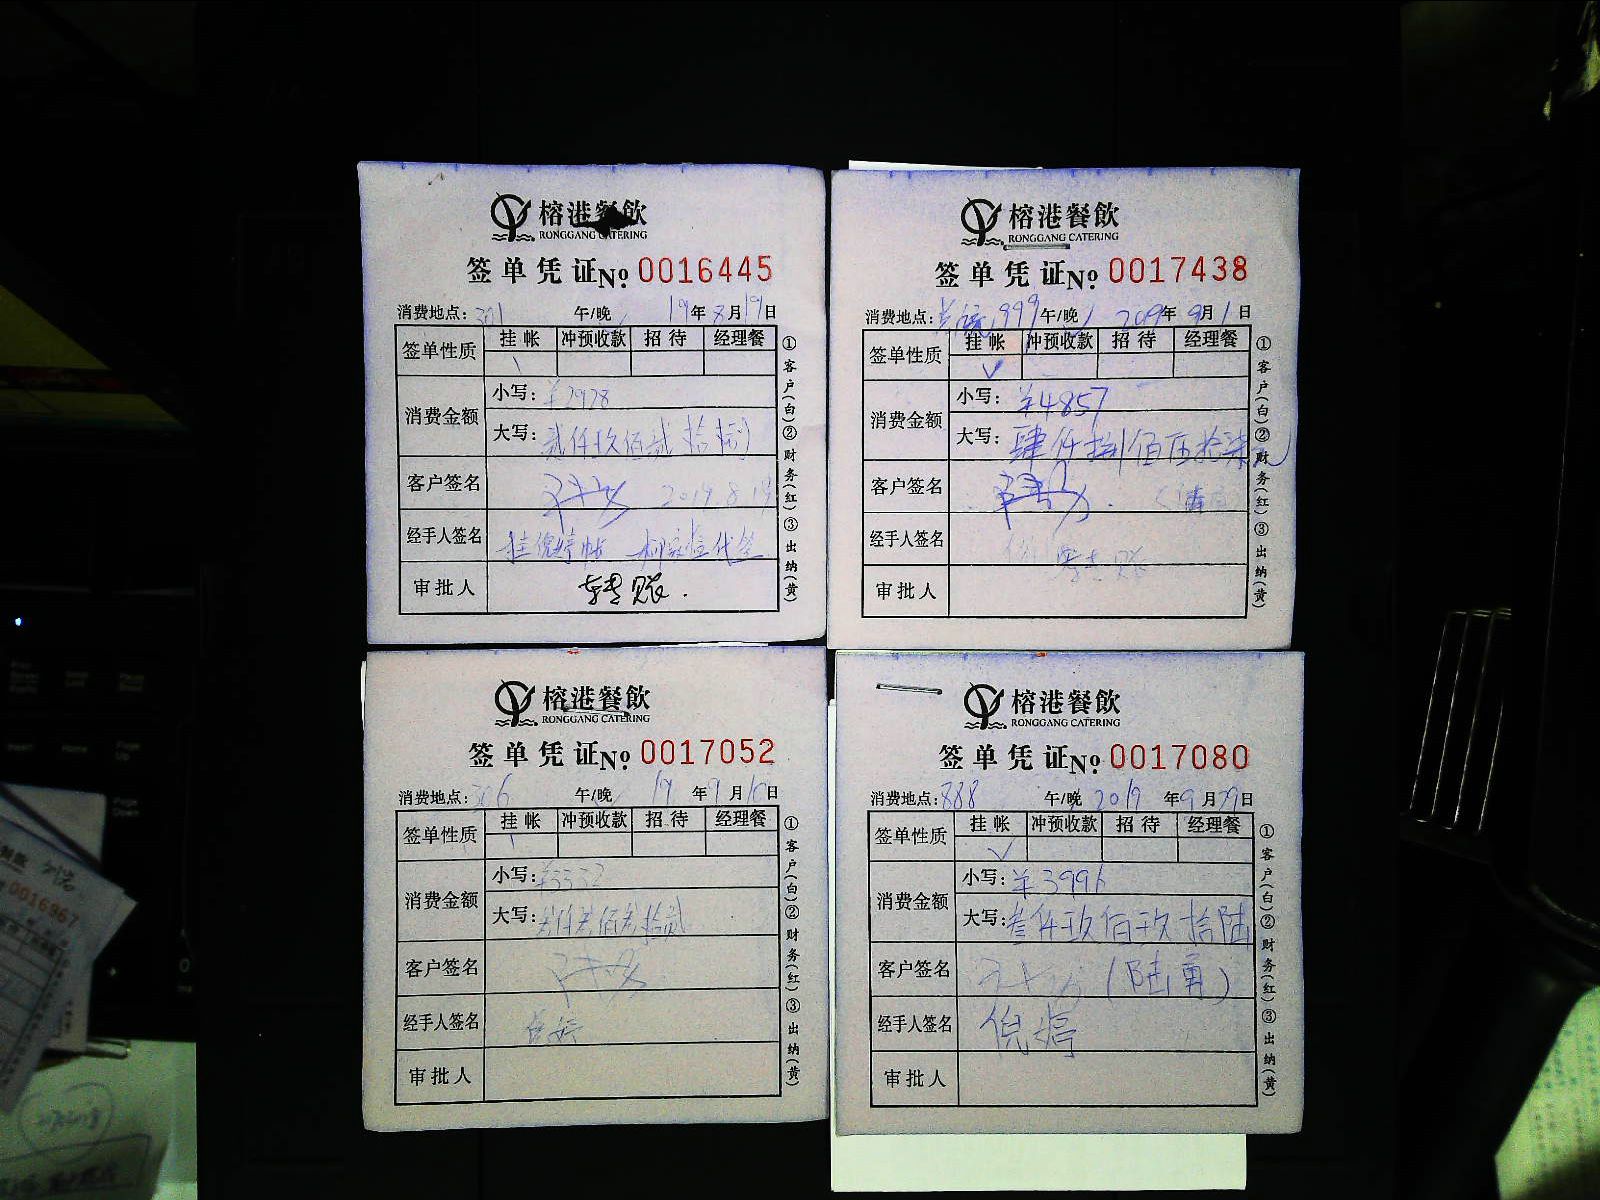 榕港餐飲
RONGGANG CATERING
签单凭证No. 0016445
消费地点: 301 午/晚 19年8月19日
签单性质 挂帐 冲预收款 招待 经理餐
消费金额 小写: ¥2928
大写: 贰仟玖佰贰拾捌
客户签名 2019.8.19
经手人签名 挂倪婷帐 代签
审批人 转账.
①客户(白)②财务(红)③出纳(黄)
榕港餐飲
RONGGANG CATERING
签单凭证No. 0017438
消费地点: 999 午/晚 2019年9月1日
签单性质 挂帐 冲预收款 招待 经理餐
消费金额 小写: ¥4857
大写: 肆仟捌佰伍拾柒元
客户签名
经手人签名 转账
审批人
①客户(白)②财务(红)③出纳(黄)
榕港餐飲
RONGGANG CATERING
签单凭证No. 0017052
消费地点: 306 午/晚 19年9月10日
签单性质 挂帐 冲预收款 招待 经理餐
消费金额 小写: ¥3332
大写: 叁仟叁佰叁拾贰
客户签名
经手人签名
审批人
①客户(白)②财务(红)③出纳(黄)
榕港餐飲
RONGGANG CATERING
签单凭证No. 0017080
消费地点: 888 午/晚 2019年9月29日
签单性质 挂帐 冲预收款 招待 经理餐
消费金额 小写: ¥3996
大写: 叁仟玖佰玖拾陆
客户签名 (陆勇)
经手人签名 倪婷
审批人
①客户(白)②财务(红)③出纳(黄)
0016967